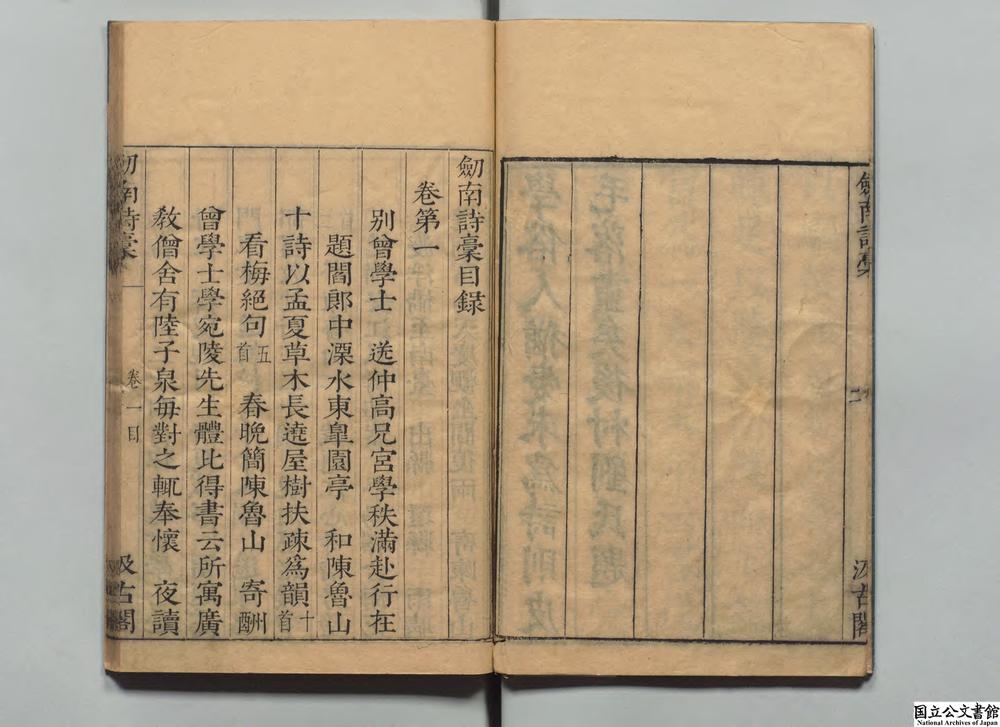 劒南詩稾
二
汲古閣
劒南詩稾目録
卷第一
別曾學士　送仲高兄宮學秩滿赴行在
題閻郎中溧水東臯園亭　和陳魯山
十詩以孟夏草木長遶屋樹扶疎爲韻十首
看梅絕句五首　春晚簡陳魯山　寄酬
曾學士學宛陵先生體比得書云所寓廣
敎僧舍有陸子泉每對之輒奉懷　夜讀
劒南詩稾
卷一目
一
汲古閣
国立公文書館
National Archives of Japan